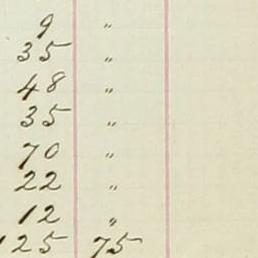 9 "
35 "
48 "
35 "
70 "
22 "
12 "
125 75